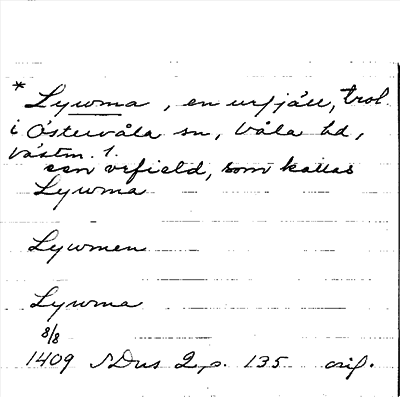 * Lywma, en urfjäll, trol.
i Östervåla sn, Våla hd,
Västm. l.
een vrfield, som kallas
Lywma
Lywmen
Lywma
8/8
1409 SDns 2, p. 135 orig.